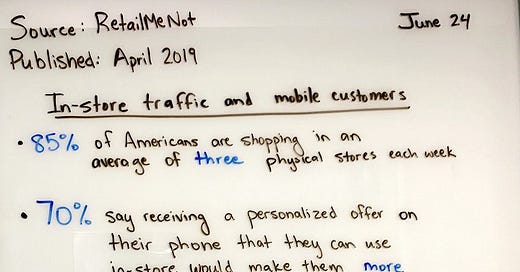 Source: RetailMeNot
June 24
Published: April 2019
In-store traffic and mobile customers
• 85% of Americans are shopping in an
average of three physical stores each week
• 70% say receiving a personalized offer on
their phone that they can use
in-store would make them more